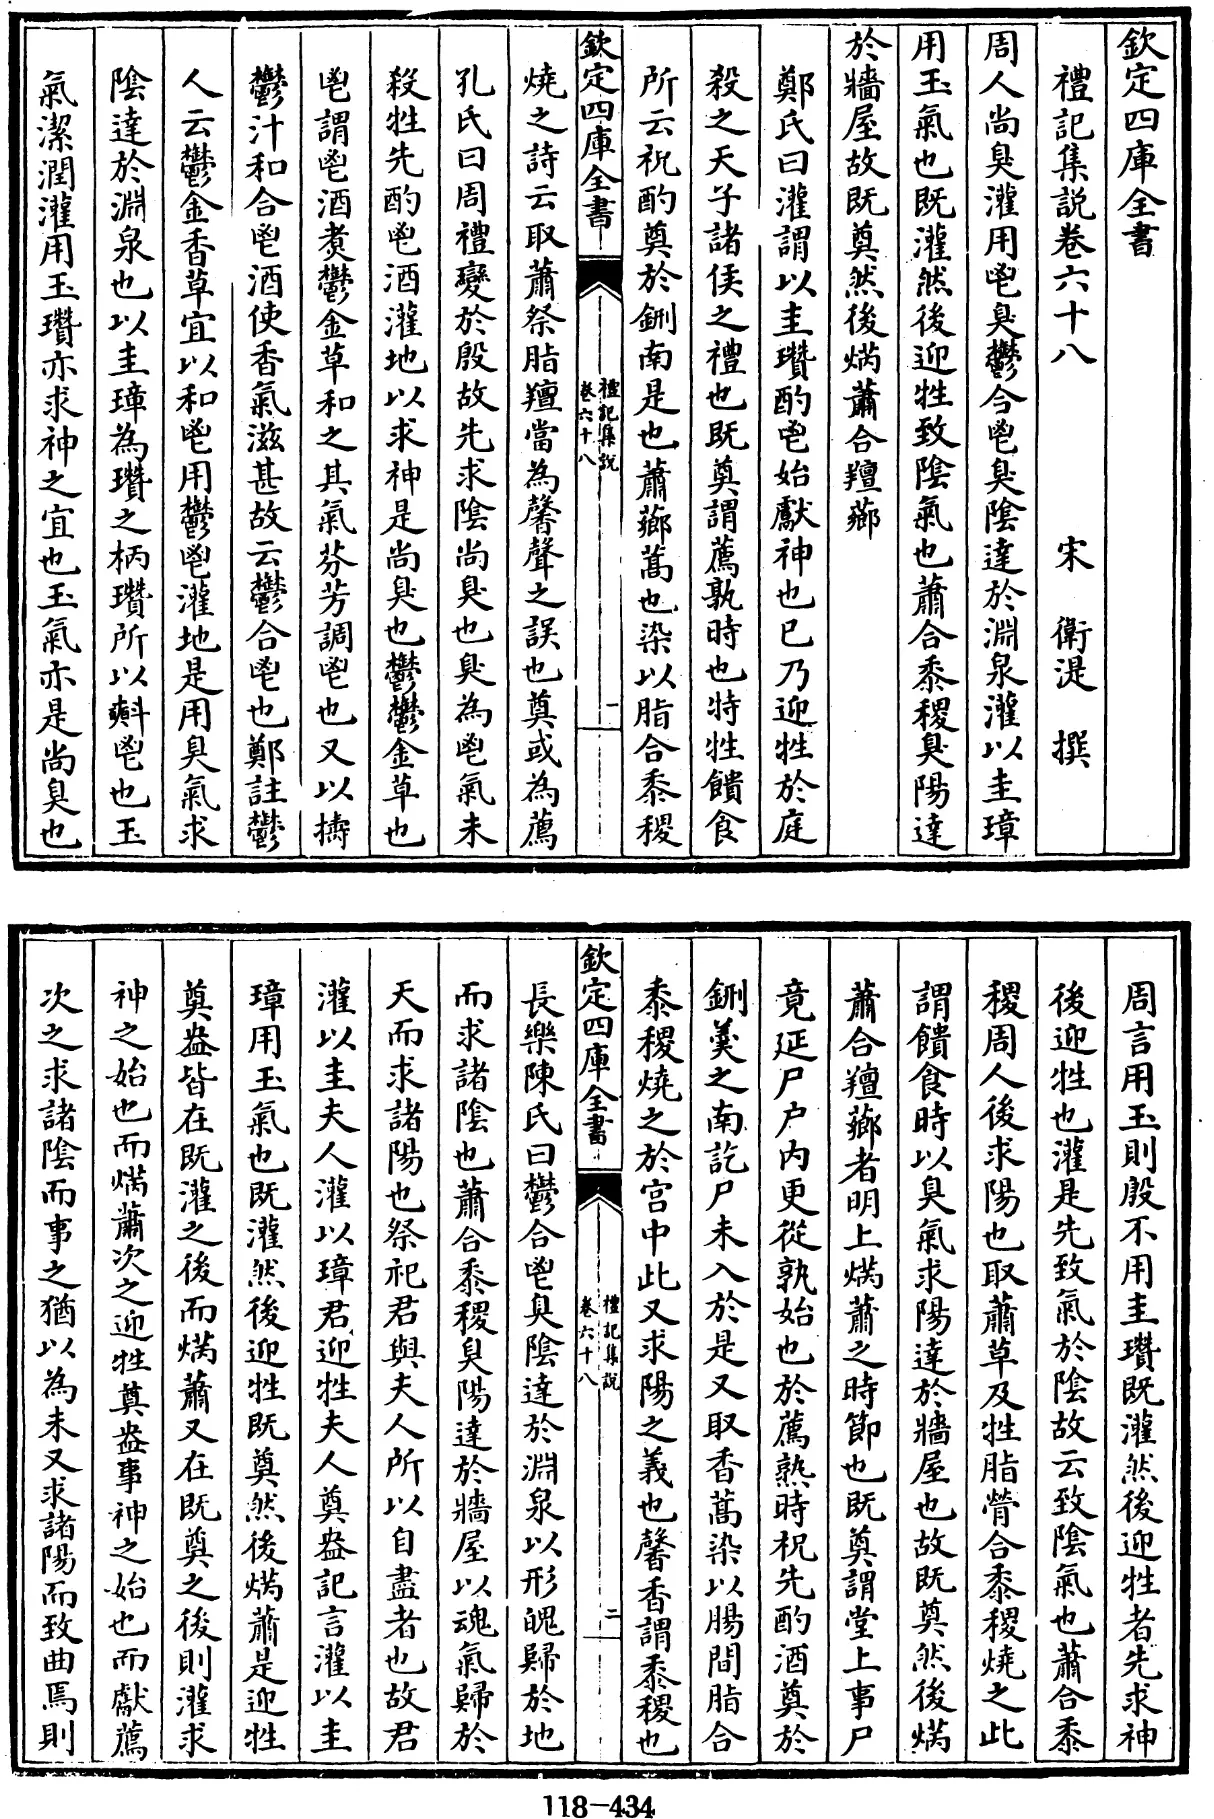 欽定四庫全書
禮記集說卷六十八　宋　衛湜　撰
周人尚臭灌用鬯臭鬱合鬯臭陰達於淵泉灌以圭璋
用玉氣也既灌然後迎牲致陰氣也蕭合黍稷臭陽達
於牆屋故既奠然後焫蕭合羶薌
鄭氏曰灌謂以圭瓚酌鬯始獻神也已乃迎牲於庭
殺之天子諸侯之禮也既奠謂薦孰時也特牲饋食
所云祝酌奠於鉶南是也蕭薌蒿也染以脂合黍稷
欽定四庫全書
禮記集說
卷六十八
一
燒之詩云取蕭祭脂羶當為馨聲之誤也奠或為薦
孔氏曰周禮變於殷故先求陰尚臭也臭為鬯氣未
殺牲先酌鬯酒灌地以求神是尚臭也鬱鬱金草也
鬯謂鬯酒煑鬱金草和之其氣芬芳調鬯也又以擣
鬱汁和合鬯酒使香氣滋甚故云鬱合鬯也鄭註鬱
人云鬱金香草宜以和鬯用鬱鬯灌地是用臭氣求
陰達於淵泉也以圭璋為瓚之柄瓚所以㪺鬯也玉
氣潔潤灌用玉瓚亦求神之宜也玉氣亦是尚臭也
周言用玉則殷不用圭瓚既灌然後迎牲者先求神
後迎牲也灌是先致氣於陰故云致陰氣也蕭合黍
稷周人後求陽也取蕭草及牲脂膋合黍稷燒之此
謂饋食時以臭氣求陽達於牆屋也故既奠然後焫
蕭合羶薌者明上焫蕭之時節也既奠謂堂上事尸
竟延尸户内更從孰始也於薦熟時祝先酌酒奠於
鉶羮之南訖尸未入於是又取香蒿染以腸間脂合
黍稷燒之於宫中此又求陽之義也馨香謂黍稷也
欽定四庫全書
禮記集說
卷六十八
二
長樂陳氏曰鬱合鬯臭陰達於淵泉以形魄歸於地
而求諸陰也蕭合黍稷臭陽達於牆屋以魂氣歸於
天而求諸陽也祭祀君與夫人所以自盡者也故君
灌以圭夫人灌以璋君迎牲夫人奠盎記言灌以圭
璋用玉氣也既灌然後迎牲既奠然後焫蕭是迎牲
奠盎皆在既灌之後而焫蕭又在既奠之後則灌求
神之始也而焫蕭次之迎牲奠盎事神之始也而獻薦
次之求諸陰而事之猶以為未又求諸陽而致曲焉則
118-434